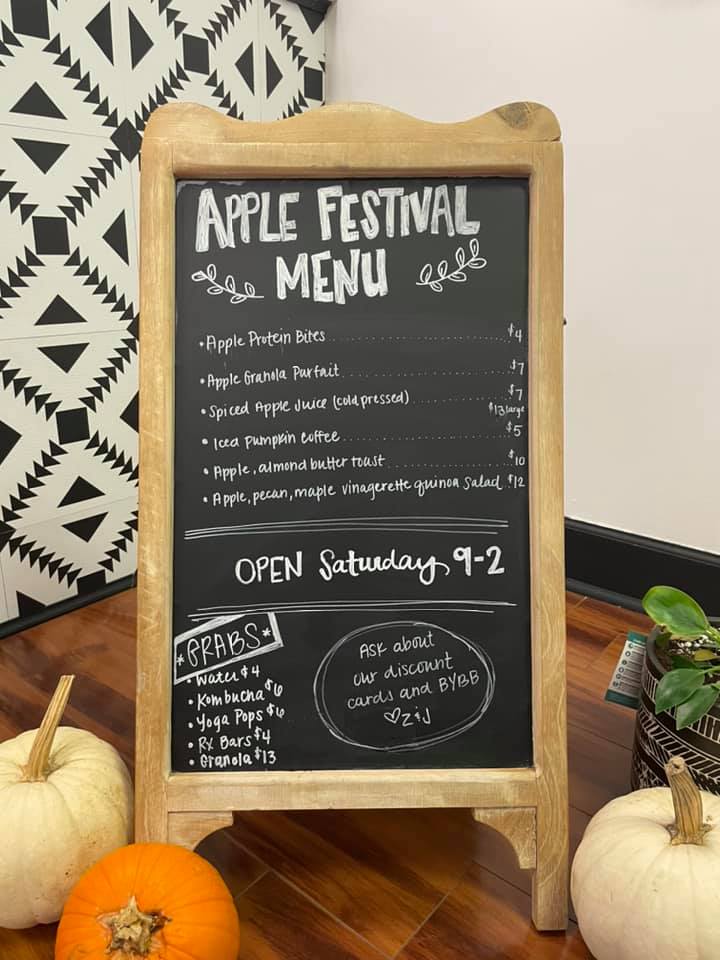 APPLE FESTIVAL
MENU
• Apple Protein Bites ........................ $4
• Apple Granola Parfait ........................ $7
• Spiced Apple Juice (cold pressed) ............... $7
$13 large
• Iced Pumpkin Coffee ........................ $5
• Apple, almond butter toast .................. $10
• Apple, pecan, maple vinagerette quinoa salad. $12
OPEN Saturday 9-2
*GRABS*
• Water $4
• Kombucha $6
• Yoga Pops $6
• Rx Bars $4
• Granola $13
Ask about
our discount
cards and BYBB
♡ Z & J